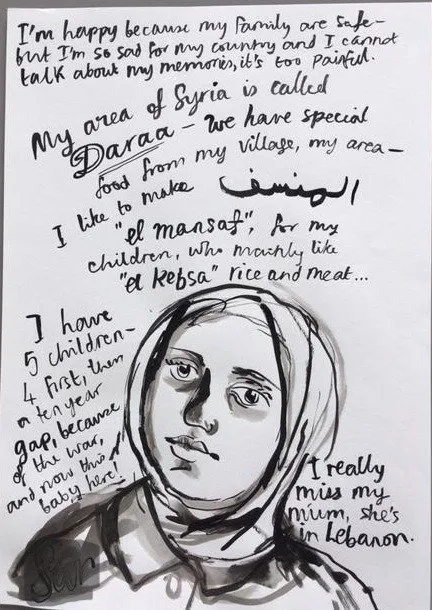 I'm happy because my family are safe–
but I'm so sad for my country and I cannot
talk about my memories, it's too painful.
My area of Syria is called
Daraa – we have special
food from my village, my area –
I like to make المنسف
"el mansaf", for my
children, who mainly like
"el kebsa" rice and meat...
I have
5 children–
4 first, then
a ten year
gap, because
of the war,
and now this
baby here!
I really
miss my
mum, she's
in Lebanon.